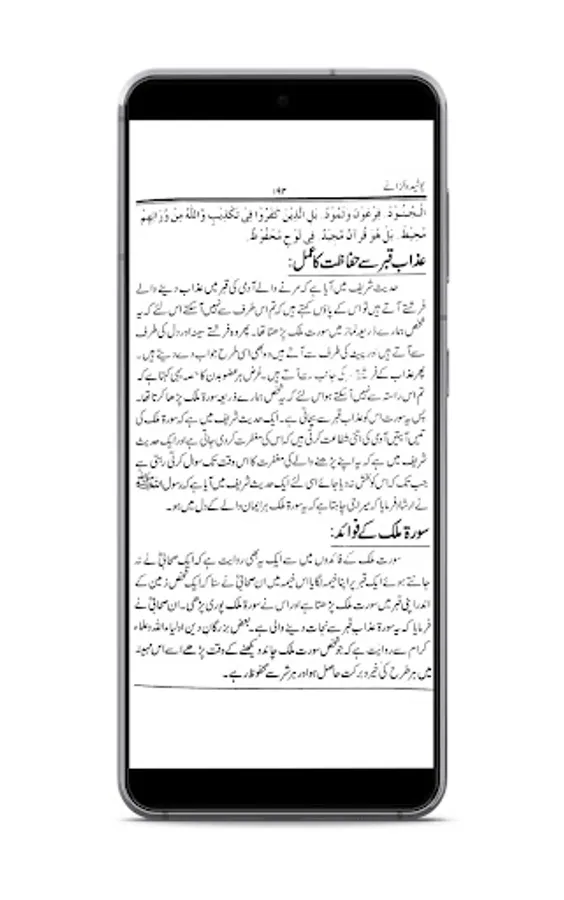 پوشیدہ خزانے
۱۹۳
الْجُنُوْدِ۔ فِرْعَوْنَ وَثَمُوْدَ۔ بَلِ الَّذِيْنَ كَفَرُوْا فِيْ تَكْذِيْبٍ وَّاللّٰهُ مِنْ وَّرَآئِهِمْ
مُّحِيْطٌ۔ بَلْ هُوَ قُرْاٰنٌ مَّجِيْدٌ۔ فِيْ لَوْحٍ مَّحْفُوْظٍ۔
عذاب قبر سے حفاظت کا عمل:
حدیث شریف میں آیا ہے کہ مرنے والے آدمی کی قبر میں عذاب دینے والے
فرشتے آتے ہیں تو اس کے پاؤں کہتے ہیں کہ تم اس طرف سے نہیں آسکتے اس لئے کہ یہ
شخص ہمارے ذریعہ نماز میں سورت ملک پڑھتا تھا۔ پھر وہ فرشتے سینہ اور دل کی طرف
سے آتے ہیں اور پیٹ کی طرف سے آتے ہیں وہ بھی اسی طرح جواب دے دیتے ہیں۔
پھر عذاب کے فرشتے کی جانب سے آتے ہیں۔ غرض ہر عضو بدن کا حصہ یہی کہتا ہے کہ
تم اس راستہ سے نہیں آسکتے ہو اس لئے کہ یہ شخص ہمارے ذریعہ سورۃ ملک پڑھا کرتا تھا۔
پس یہ سورت اس کو عذاب قبر سے بچاتی ہے۔ ایک حدیث شریف میں ہے کہ سورۃ ملک کی
تیس آیتیں آدمی کی اتنی شفاعت کرتی ہیں کہ اس کی مغفرت کردی جاتی ہے اور ایک حدیث
شریف میں ہے کہ یہ اپنے پڑھنے والے کی مغفرت کا اس وقت تک سوال کرتی رہتی ہے
جب تک کہ اس کو بخش نہ دیا جائے اسی لئے ایک حدیث شریف میں آیا ہے کہ رسول اللہ ﷺ
نے ارشاد فرمایا کہ میرا جی چاہتا ہے کہ یہ سورۃ ملک ہر ایمان والے کے دل میں ہو۔
سورۃ ملک کے فوائد:
سورت ملک کے فائدوں میں سے ایک یہ بھی روایت ہے کہ ایک صحابیؓ نے نہ
جانتے ہوئے ایک قبر پر اپنا خیمہ لگایا اس خیمہ میں ان صحابیؓ نے سنا کہ ایک شخص زمین کے
اندر اپنی قبر میں سورت ملک پڑھتا ہے اور اس نے سورۃ ملک پوری پڑھی۔ ان صحابیؓ نے
فرمایا کہ یہ سورۃ عذاب قبر سے نجات دینے والی ہے۔ بعض بزرگان دین اولیاء اللہ وعلماء
کرام سے روایت ہے کہ جو شخص سورت ملک چاند دیکھنے کے وقت پڑھے اسے اس مہینہ
میں ہر طرح کی خیر و برکت حاصل ہو اور ہر شر سے محفوظ رہے۔